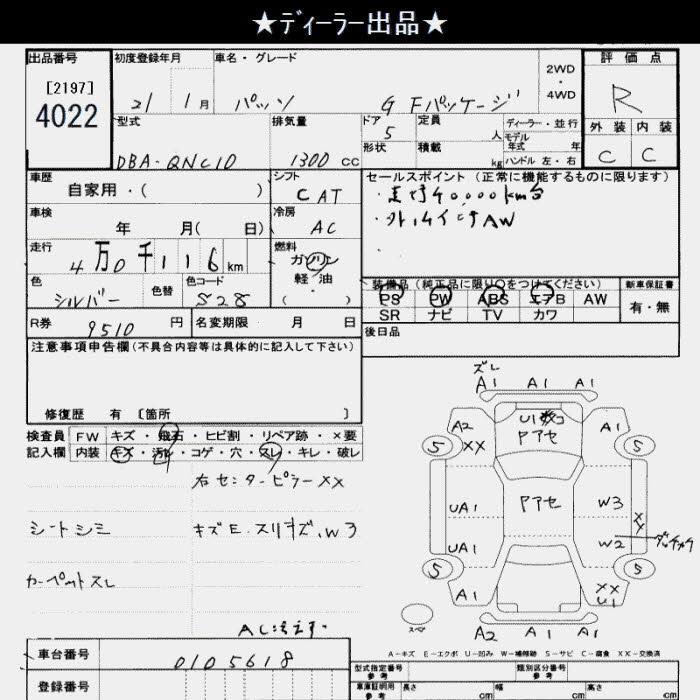 ★ディーラー出品★
出品番号 初度登録年月 車名・グレード 2WD・4WD 評価点
[2197]
4022
21 1月 パッソ G Fパッケージ R
型式 排気量 ドア 定員 人 ディーラー・並行 外装 内装
DBA-QNC10 1300 cc 5 形状 積載 kg モデル年式 年 ハンドル 左・右 C C
車歴 シフト セールスポイント(正常に機能するものに限ります)
自家用・( ) C AT ・走行40,000km台
車検 冷房 ・外,15インチAW
年 月( 日) AC ・
走行 4万0千116km 燃料 ガソリン・軽油・( )
色 色替 色コード 装備品(純正品に限り○をつけてください) 新車保証書
シルバー S28 PS PW ABS エアB AW 有・無
SR ナビ TV カワ
R券 9510円 名変期限 月 日 後日品
注意事項申告欄(不具合内容等は具体的に記入して下さい)
修復歴 有 [箇所 ]
検査員 FW キズ・飛石・ヒビ割・リペア跡・×要
記入欄 内装 キズ・汚れ・コゲ・穴・スレ・キレ・破レ
右センターピラーXX
シートシミ キズE.スリキズ,W3
カーペットスレ
ズレ
A1 A1 A1
A2 XX U1 A1
アアセ
5 5
アアセ W3
UA1 XX
UA1 W2
5 5
A1 XX U1
スペア A2 A1 A1
A-キズ E-エクボ U-凹み W-補修跡 S-サビ C-腐食 XX-交換済
車台番号 0105618
登録番号
型式指定番号 参考 類別区分番号 参考
車庫証明用 参考 長さ cm 幅 cm 高さ cm